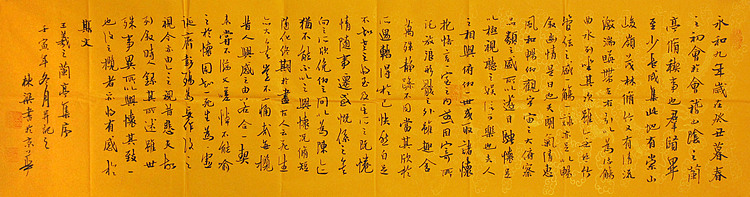 永和九年歲在癸丑暮春
之初會于會稽山陰之蘭
亭脩稧事也群賢畢
至少長咸集此地有崇山
峻嶺茂林脩竹又有清流
激湍暎帶左右引以為流觴
曲水列坐其次雖無絲竹
管弦之盛一觴一詠亦足以暢
敘幽情是日也天朗氣清惠
風和暢仰觀宇宙之大俯察
品類之盛所以遊目騁懷足
以極視聽之娛信可樂也夫人
之相與俯仰一世或取諸懷
抱悟言一室之内或因寄所
託放浪形骸之外雖趣舍
萬殊靜躁不同當其欣於
所遇暫得於己怏然自足
不知老之將至及其所之既惓
情隨事遷感慨係之矣
向之所欣俛仰之間以為陳迹
猶不能不以之興懷況脩短
隨化終期於盡古人云死生
亦大矣豈不痛哉每攬
昔人興感之由若合一契
未嘗不臨文嗟悼不能喻
之於懷固知一死生為虛
誕齊彭殤為妄作後之
視今亦由今之視昔悲夫故
列敘時人錄其所述雖世
殊事異所以興懷其致一
也後之攬者亦將有感於
斯文
王羲之蘭亭集序
壬寅年冬月
書於京華